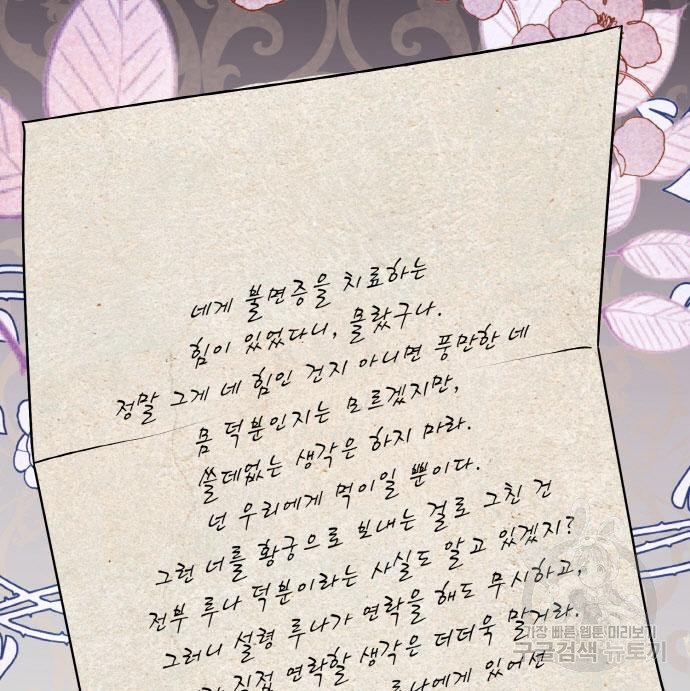 네게 불면증을 치료하는
힘이 있었다니, 몰랐구나.
정말 그게 네 힘인 건지 아니면 풍만한 네
몸 덕분인지는 모르겠지만,
쓸데없는 생각은 하지 마라.
넌 우리에게 먹이일 뿐이다.
그런 너를 황궁으로 보내는 걸로 그친 건
전부 루나 덕분이라는 사실도 알고 있겠지?
그러니 설령 루나가 연락을 해도 무시하고,
직접 연락할 생각은 더더욱 말거라.
루나에게 있어선
가장 빠른 웹툰 미리보기
구글검색 뉴토끼